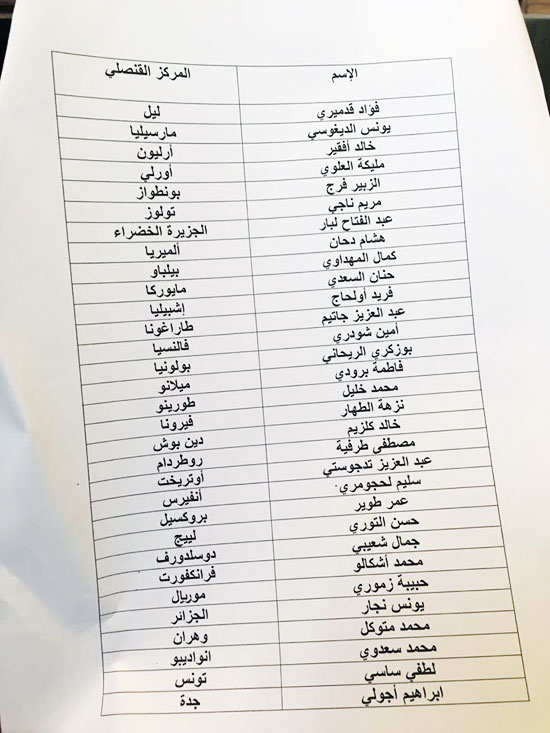 الإسم المركز القنصلي
فؤاد قدميري ليل
يونس الديغوسي مارسيليا
خالد أفقير أرليون
مليكة العلوي أورلي
الزبير فرج بونطواز
مريم ناجي تولوز
عبد الفتاح لبار الجزيرة الخضراء
هشام دحان ألميريا
كمال المهداوي بيلباو
حنان السعدي مايوركا
فريد أولحاج إشبيليا
عبد العزيز جاتيم طاراغونا
أمين شودري فالنسيا
بوزكري الريحاني بولونيا
فاطمة برودي ميلانو
محمد خليل طورينو
نزهة الطهار فيرونا
خالد كلزيم دين بوش
مصطفى طرفية روطردام
عبد العزيز تدجوستي أوتريخت
سليم لحجومري. أنفيرس
عمر طوير بروكسيل
حسن التوري لييج
جمال شعيبي دوسلدورف
محمد أشكالو فرانكفورت
حبيبة زموري موريال
يونس نجار الجزائر
محمد متوكل وهران
محمد سعدوي انواديبو
لطفي ساسي تونس
ابراهيم أجولي جدة